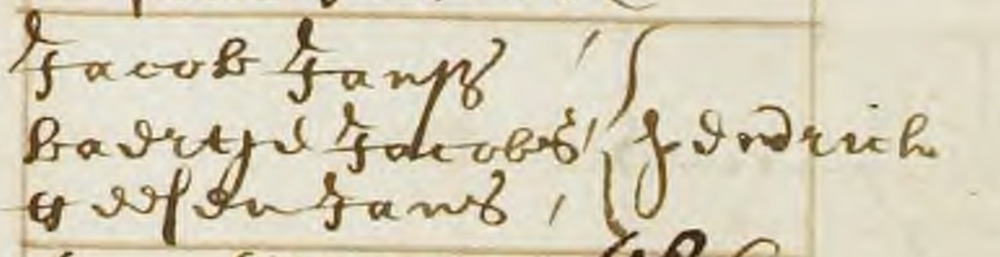 Jacob Jansz
baertje Jacobs
Jans
Hendrick